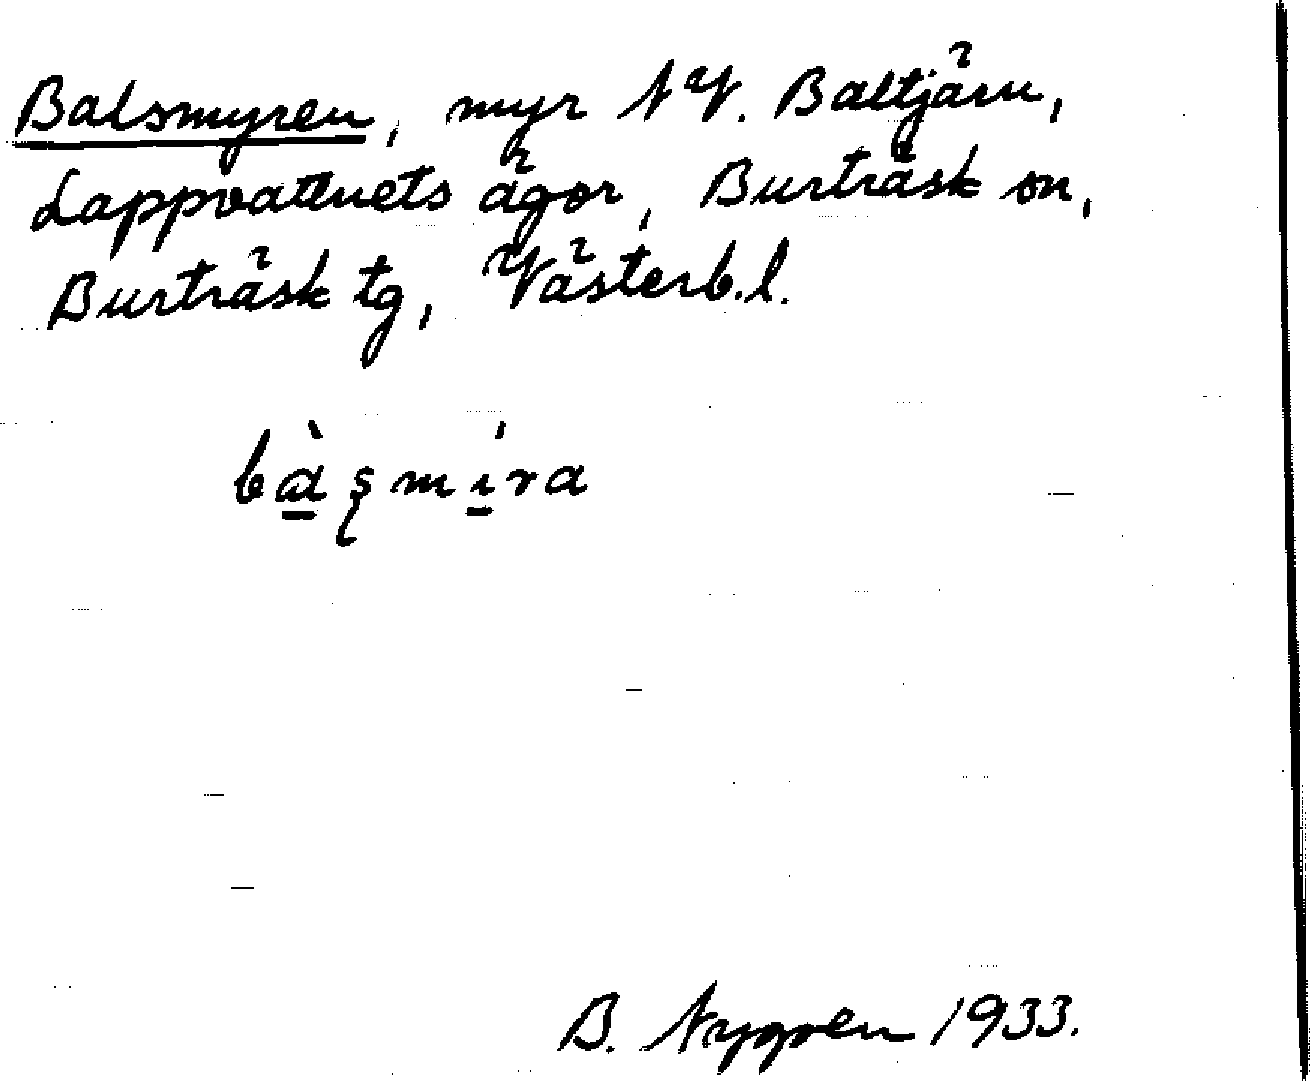 Balsmyren, myr NV. Baltjärn,
Lappvattnets ägor, Burträsk sn,
Burträsk tg, Västerb.l.
bàʂmíra
B. Nygren 1933.